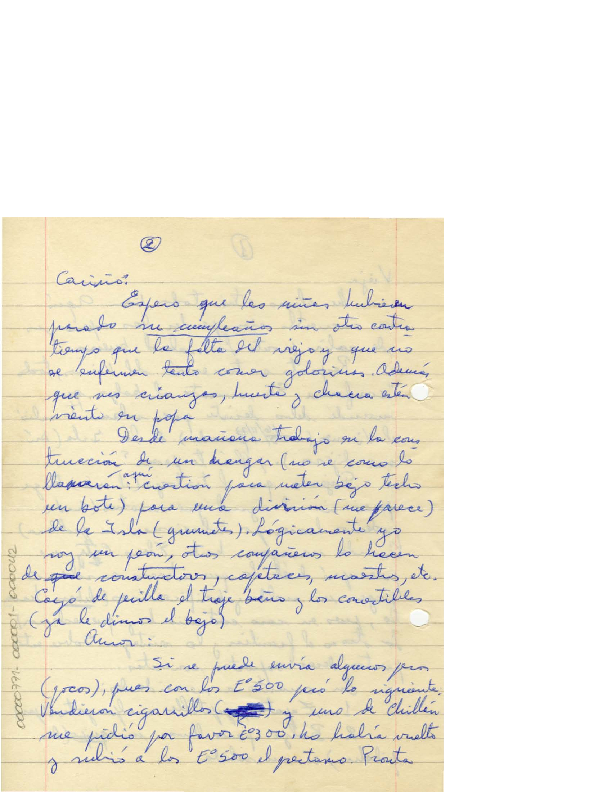 ②
Cariño:
Espero que las niñas hubiesen
pasado su cumpleaños sin otro contra
tiempo que la falta del viejo y que no
se enfermen tanto comer golosinas. Además
que sus crianzas, huerta y chacra estén
viento en popa
Desde mañana trabajo en la cons
trucción de un hangar (no sé como lo
llamarán aquí: cuestión para meter bajo techo
un bote) para una división (me parece)
de la Isla (grumetes). Lógicamente yo
soy un peón, otros compañeros lo hacen
de que constructores, capataces, maestros, etc.
Cayó de perilla el traje baño y los comestibles
(ya le dimos el bajo)
Amor:
Si se puede envía algunos pesos
(pocos), pues con los Eº500 pasó lo siguiente.
Vendieron cigarrillos ( ) y uno de Chillán
me pidió por favor Eº300, no había vuelto
y subió a los Eº500 el préstamo. Pronta
00000771-000001-000002